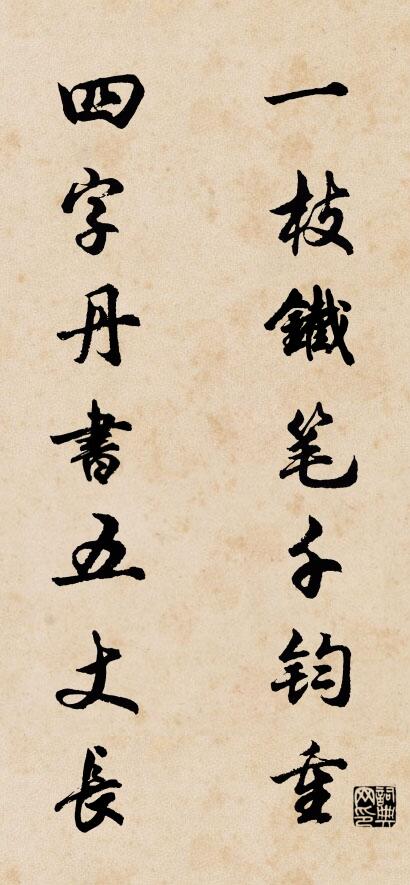 一枝鐵笔千钧重
四字丹書五丈長
詞典网印